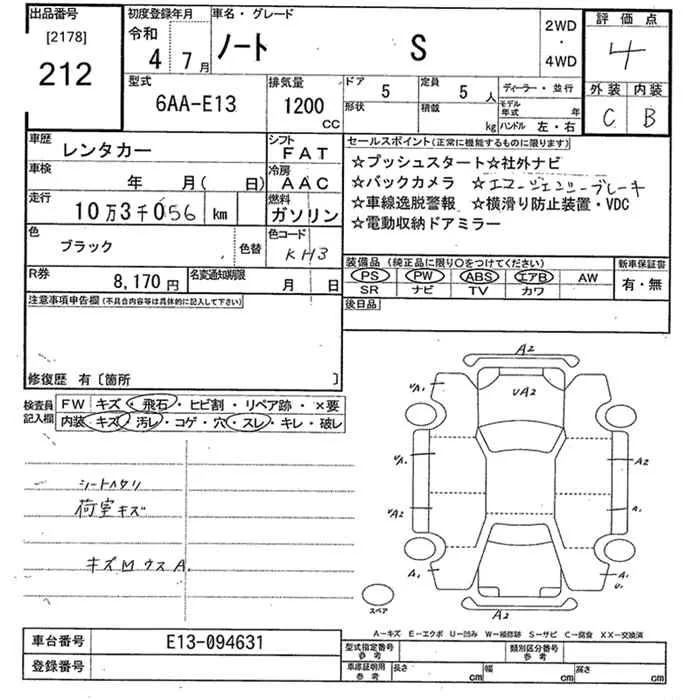 出品番号
[2178]
212
初度登録年月
令和
4 7月
車名・グレード
ノート S
2WD
・
4WD
評価点
4
外装 内装
C B
型式
6AA-E13
排気量
1200
CC
ドア 5
形状
定員 5 人
積載 kg
ディーラー・並行
モデル年式 年
ハンドル 左・右
車歴
レンタカー
シフト
FAT
車検
年 月( 日)
冷房
AAC
走行
10万3千056 km
燃料
ガソリン
色
ブラック
色替
色コード
KH3
R券
8,170円
名変通知期限
月 日
セールスポイント(正常に機能するものに限ります)
☆プッシュスタート☆社外ナビ
☆バックカメラ ☆エマージェンシーブレーキ
☆車線逸脱警報 ☆横滑り防止装置・VDC
☆電動収納ドアミラー
装備品(純正品に限り○をつけてください)
PS PW ABS エアB AW
SR ナビ TV カワ
新車保証書
有・無
後日品
注意事項申告欄(不具合内容等は具体的に記入して下さい)
修復歴 有〔箇所 〕
検査員
記入欄
FW キズ・飛石・ヒビ割・リペア跡・×要
内装 キズ・汚レ・コゲ・穴・スレ・キレ・破レ
シートヘタリ
荷室キズ
キズMウスA.
A2
UA2
UA.
A.
UA.
A2
UA2
A.
A.
A.
U.
A2
スペア
A−キズ E−エクボ U−凹み W−補修跡 S−サビ C−腐食 XX−交換済
車台番号
E13-094631
登録番号
型式指定番号
参考
類別区分番号
参考
車庫証明用
参考
長さ cm
幅 cm
高さ cm